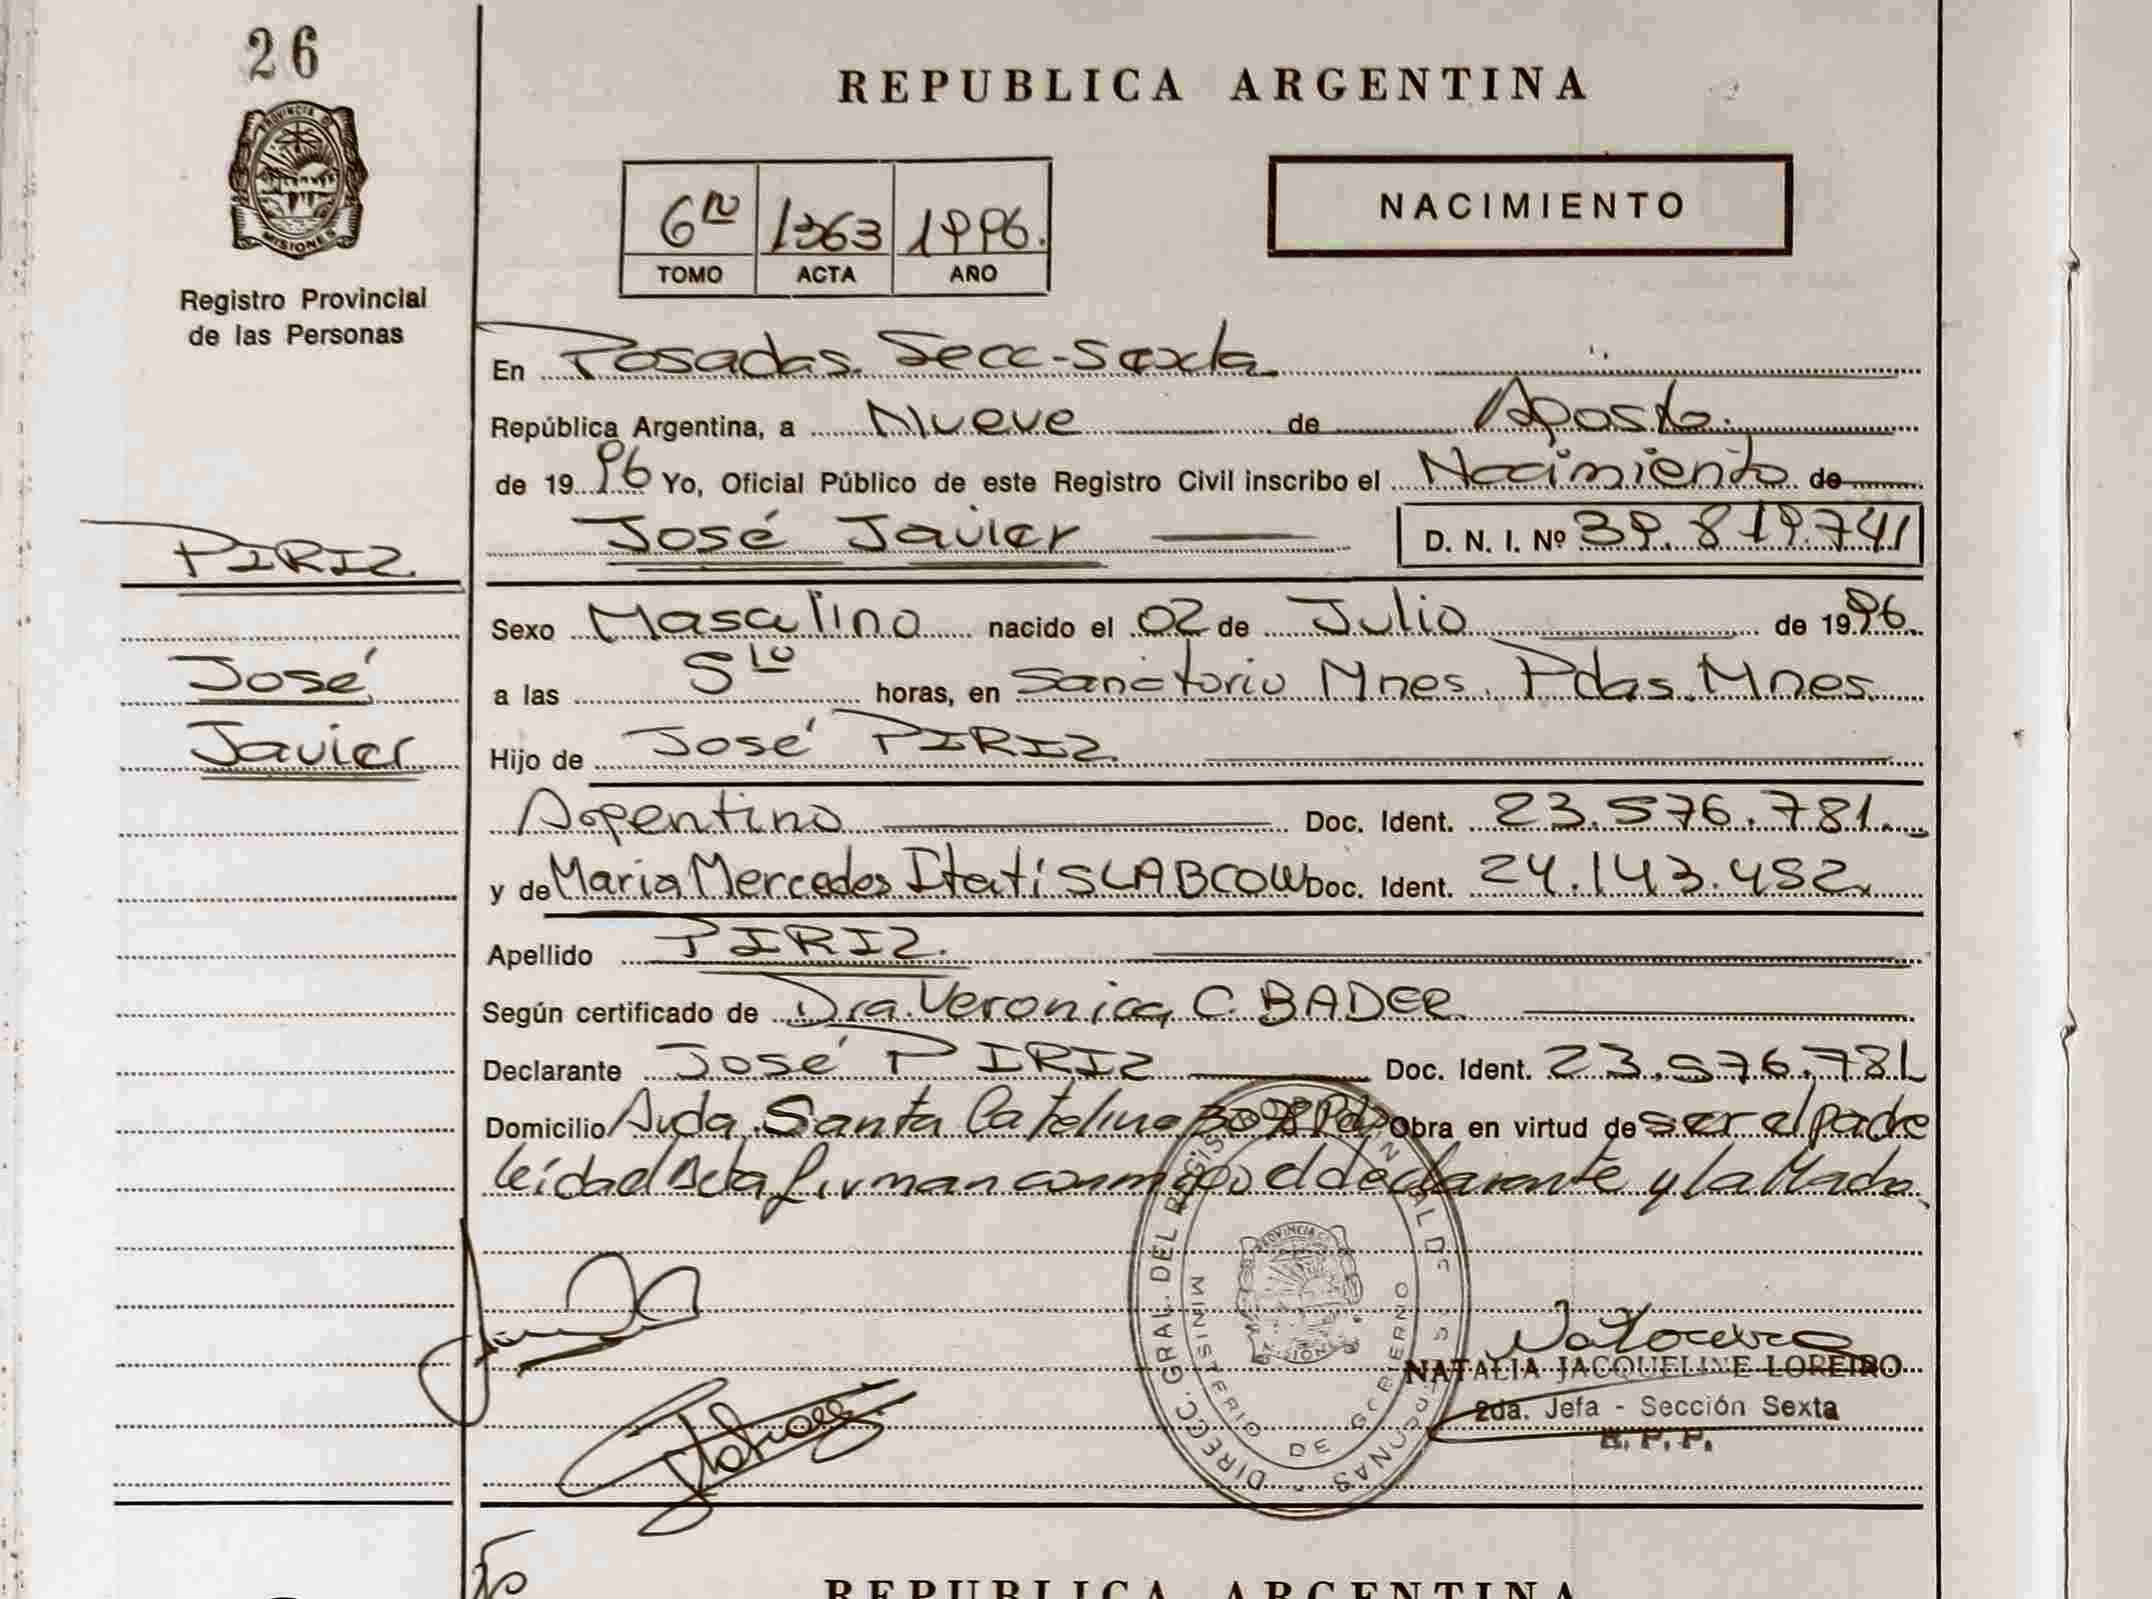 26
REPUBLICA ARGENTINA
PROVINCIA DE
MISIONES
Registro Provincial
de las Personas
6to 1363 1996.
TOMO ACTA AÑO
NACIMIENTO
En Posadas. Secc-Sexta
República Argentina, a Nueve de Agosto.
de 1996 Yo, Oficial Público de este Registro Civil inscribo el Nacimiento de
José Javier D. N. I. Nº 39.819.741
PIRIZ
José
Javier
Sexo Masculino nacido el 02 de Julio de 1996.
a las 5to horas, en Sanatorio Mnes. Pdas. Mnes.
Hijo de José PIRIZ
Argentino Doc. Ident. 23.576.781.
y de Maria Mercedes Itatí SLABCOW Doc. Ident. 24.143.452.
Apellido PIRIZ.
Según certificado de Dra. Veronica C. BADER
Declarante José PIRIZ Doc. Ident. 23.576.781
Domicilio Avda. Santa Catalina 3098 Pdas Obra en virtud de ser el padre
leída el Acta firman conmigo el declarante y la Madre.
DIRECC. GRAL. DEL REGIS
MINISTERIO DE GOBIERNO
PROVINCIA
MISIONES
NATALIA JACQUELINE LOREIRO
2da. Jefa - Sección Sexta
R. P. P.
REPUBLICA ARGENTINA